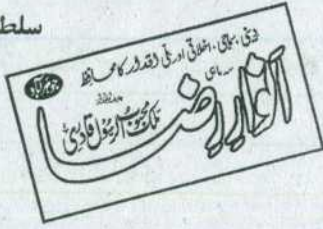 سلط
دینی، سماجی، اخلاقی اور ملی اقدار کا محافظ
سہ ماہی
جوہرآباد
انوارِ رضا
ملک محبوب الرسول قادری